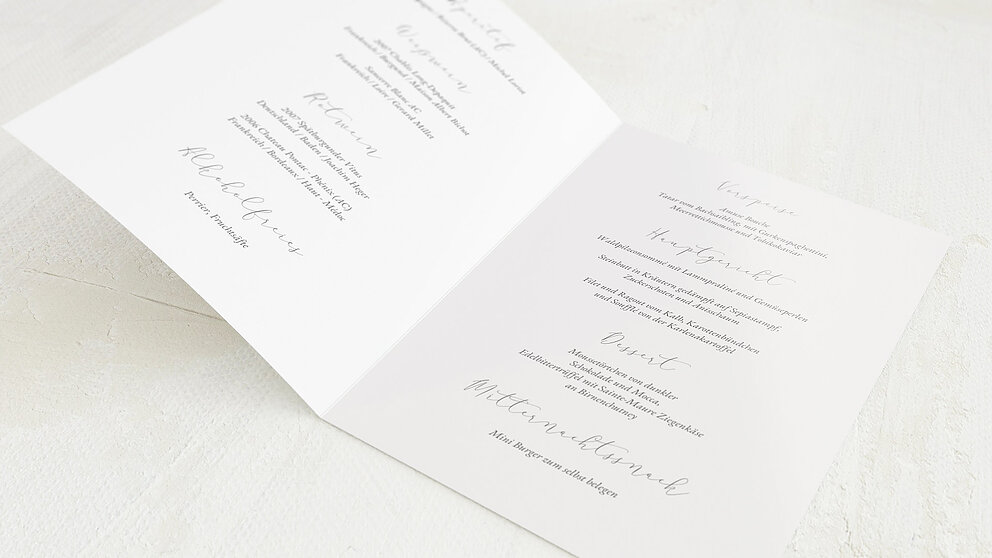 Aperitif
Michel Loriot
Weißwein
2007 Chablis Long-Depaquit
Frankreich / Burgund / Maison Albert Bichot
Sancerre Blanc AC
Frankreich / Loire / Gerard Millet
Rotwein
2007 Spätburgunder Vitus
Deutschland / Baden / Joachim Heger
2006 Chateau Pontac - Phénix (AC)
Frankreich / Bordeaux / Haut - Médoc
Alkoholfreies
Perrier, Fruchtsäfte
Vorspeise
Amuse Bouche
Tatar vom Bachsaibling, mit Gurkenspaghettini,
Meerrettichmousse und Tobikokaviar
Hauptgericht
Waldpilzconsommé mit Lammpraliné und Gemüseperlen
Steinbutt in Kräutern gedämpft auf Sepiastampf,
Zuckerschoten und Austschaum
Filet und Ragout vom Kalb, Karottenbündchen
und Soufflé von der Karlenakartoffel
Dessert
Moussetörtchen von dunkler
Schokolade und Mocca,
Edelbittertrüffel mit Sainte-Maure Ziegenkäse
an Birnenchutney
Mitternachtssnack
Mini Burger zum selbst belegen